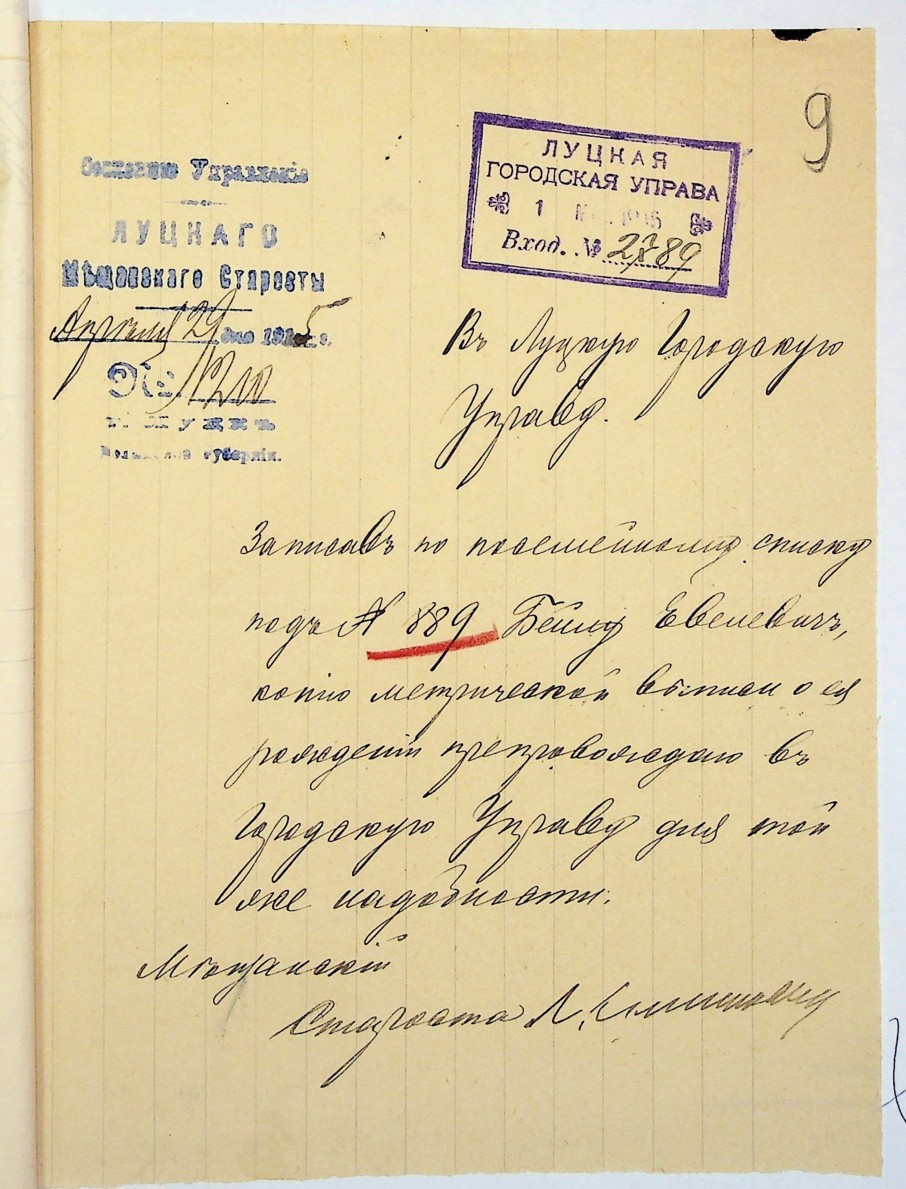 9
Управленіе
ЛУЦКАГО
Мѣщанскаго Старосты
Апрѣля 29 дня 1915 г.
№ 1210
г. ЛУЦКЪ
Волынской губерніи.
ЛУЦКАЯ
ГОРОДСКАЯ УПРАВА
1 1915
Вход. № 2789
Въ Луцкую Городскую
Управу.
Записавъ по посемейному списку
подъ № 889 Бейлу Евелевичъ,
копію метрической выписи о ея
рожденіи препровождаю въ
Городскую Управу для той
же надобности.
Мѣщанскій
Староста Л.